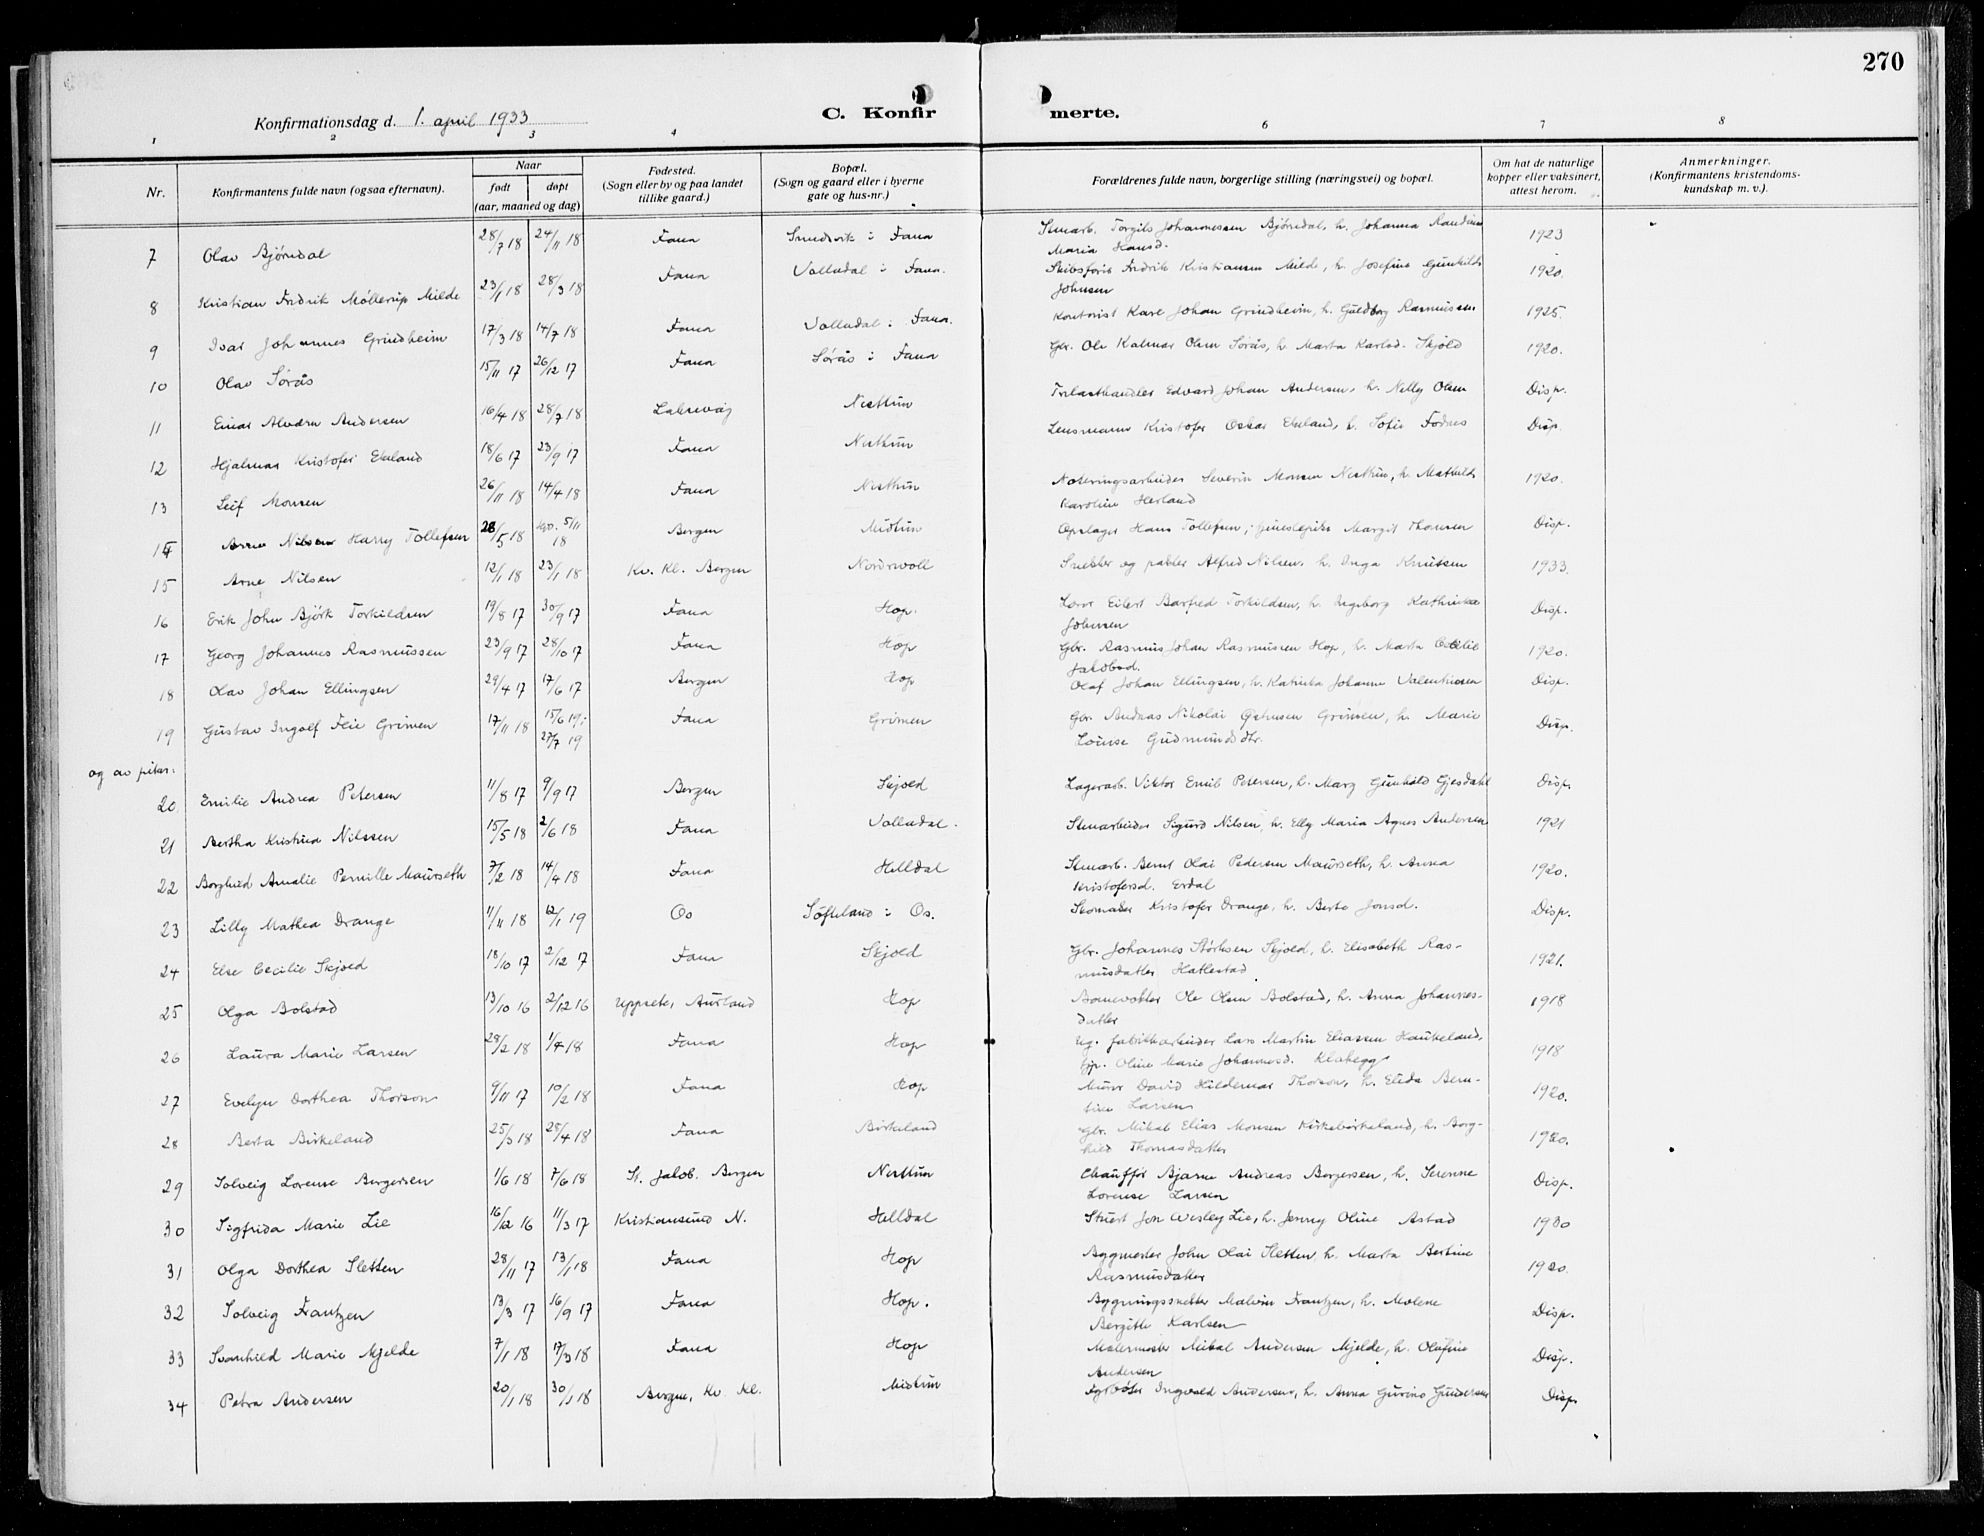 270
Konfirmationsdag d. 1. april 1933
C. Konfirmerte.
1 2 3 4 6 7 8
Nr.
Konfirmantens fulde navn (ogsaa efternavn).
Naar
født døpt
(aar, maaned og dag)
Fødested.
(Sogn eller by og paa landet
tillike gaard.)
Bopæl.
(Sogn og gaard eller i byerne
gate og hus-nr.)
Forældrenes fulde navn, borgerlige stilling (næringsvei) og bopæl.
Om hat de naturlige
kopper eller vaksinert,
attest herom.
Anmerkninger.
(Konfirmantens kristendoms-
kundskap m. v.).
7 Olav Bjørndal 28/7 18 24/11 18 Fana i Fana Torgils Johannessen Bjørndal, h. Johanna
Maria Hansd. 1923
8 Kristian Fredrik Møllerup Milde 23/1 18 28/3 18 Fana Valladal i Fana. Fredrik Kristiansen Milde, h. Josefine Gunhilds
Johnsen 1920.
9 Ivar Johannes Grindheim 17/3 18 14/7 18 Fana Valladal i Fana. Kontorist Kare Johan Grindheim, h. Guldborg Rasmussen 1925.
10 Olav Sørås 15/11 17 26/12 17 Fana Sørås i Fana Gbr. Ole Kalmar Olsen Sørås, h. Marta Karlsd. Skjold 1920.
11 Einar Andersen 16/4 18 28/7 18 Laksevåg Nesttun Trelasthandler Edvard Johan Andersen, h. Nelly Olsen Disp.
12 Hjalmar Kristofer Ekeland 18/6 17 23/9 17 Fana Nesttun Lensmann Kristofer Oskar Ekeland, h. Sofie Fodnes Disp.
13 Leif Monsen 26/11 18 14/4 18 Fana Nesttun Severin Monsen Nesttun, h. Mathilde
Karoline Herland 1920.
14 Harry Tollefsen 28/5 18 5/11 18 Bergen Midtun Opslager Hans Tollefsen, Margit Thomsen Disp.
15 Arne Nilsen 12/1 18 23/1 18 Kv. Kl. Bergen Nordrvoll Snekker og Alfred Nilsen, h. Inga Knutsen 1933.
16 Erik John Bjørk Torkildsen 19/8 17 30/9 17 Fana Hop. Lærer Eilert Barfred Torkildsen, h. Ingeborg Kathinka
Johnsen Disp.
17 Georg Johannes Rasmussen 23/9 17 28/10 17 Fana Hop Gbr. Rasmus Johan Rasmussen Hop, h. Marta Cecilie
Jakobsd. 1920.
18 Olav Johan Ellingsen 29/4 17 17/6 17 Bergen Hop Olaf Johan Ellingsen, h. Katinka Johanne Valentinsen Disp.
19 Gustav Ingolf Feie Grimen 17/11 18 15/6 19
27/7 19 Fana Grimen Gbr. Andreas Nikolai Grimen, h. Marie
Louise Gudmundsdtr. Disp.
og av piker:
20 Emilie Andrea Petersen 11/8 17 9/9 17 Bergen Skjold Lagerarb. Viktor Emil Petersen, h. Marg Gunhild Gjesdahl Disp.
21 Bertha Kristina Nilssen 15/5 18 2/6 18 Fana Valladal. Stenarbeider Sigurd Nilsen, h. Elly Maria Agnes Andersen 1921
22 Borghild Amalie Pernille Maurseth 7/2 18 14/4 18 Fana Helldal Stenarb. Bernt Olai Pedersen Maurseth, h. Anna
Kristofersd. Erdal 1920.
23 Lilly Mathea Drange 11/11 18 12/1 19 Os Søfteland i Os. Skomaker Kristofer Drange, h. Berta Jonsd. Disp.
24 Else Cecilie Skjold 18/10 17 2/12 17 Fana Skjold Gbr. Johannes Størksen Skjold, h. Elisabeth Ras-
musdatter Hatlestad 1921.
25 Olga Bolstad 13/10 16 2/12 16 Uppsete, Aurland Hop Banevokter Ole Olsen Bolstad, h. Anna Johannes-
datter 1918
26 Laura Marie Larsen 28/2 18 1/4 18 Fana Hop Ug. fabrikkarbeider Lars Martin Eliassen Haukeland,
Oline Marie Johannesd. Klakegg 1918
27 Evelyn Dorthea Thorson 9/11 17 10/2 18 Fana Hop Murer David Hildemar Thorson, h. Elida Bern-
tine Larsen 1920.
28 Berta Birkeland 25/3 18 28/4 18 Fana Birkeland Gbr. Mikal Elias Monsen Kirkebirkeland, h. Borg-
hild Thomasdatter 1920.
29 Solveig Lorense Bergersen 1/6 18 7/6 18 St. Jakob. Bergen Nesttun Chauffør Bjarne Andreas Bergersen, h. Serenne
Lorense Larsen Disp.
30 Sigfrida Marie Lie 16/12 16 11/3 17 Kristiansund N. Helldal Stuert Jon Wesley Lie, h. Jenny Oline Astad 1930
31 Olga Dorthea Sletten 28/11 17 13/1 18 Fana Hop Byggmester John Olai Sletten h. Marta Bertine
Rasmusdatter 1920.
32 Solveig Frantzen 13/3 17 16/9 17 Fana Hop. Bygningssnekker Malvin Frantzen, h. Molene
Bergitte Karlsen Disp.
33 Svanhild Marie Mjelde 7/1 18 17/3 18 Fana Hop Malermester Mikal Andersen Mjelde, h. Olufine
Andersen Disp.
34 Petra Andersen 20/1 18 30/1 18 Bergen, Kv. Kl. Midtun Fyrbøter Ingvald Andersen, h. Anna Gurine Gundersen Disp.